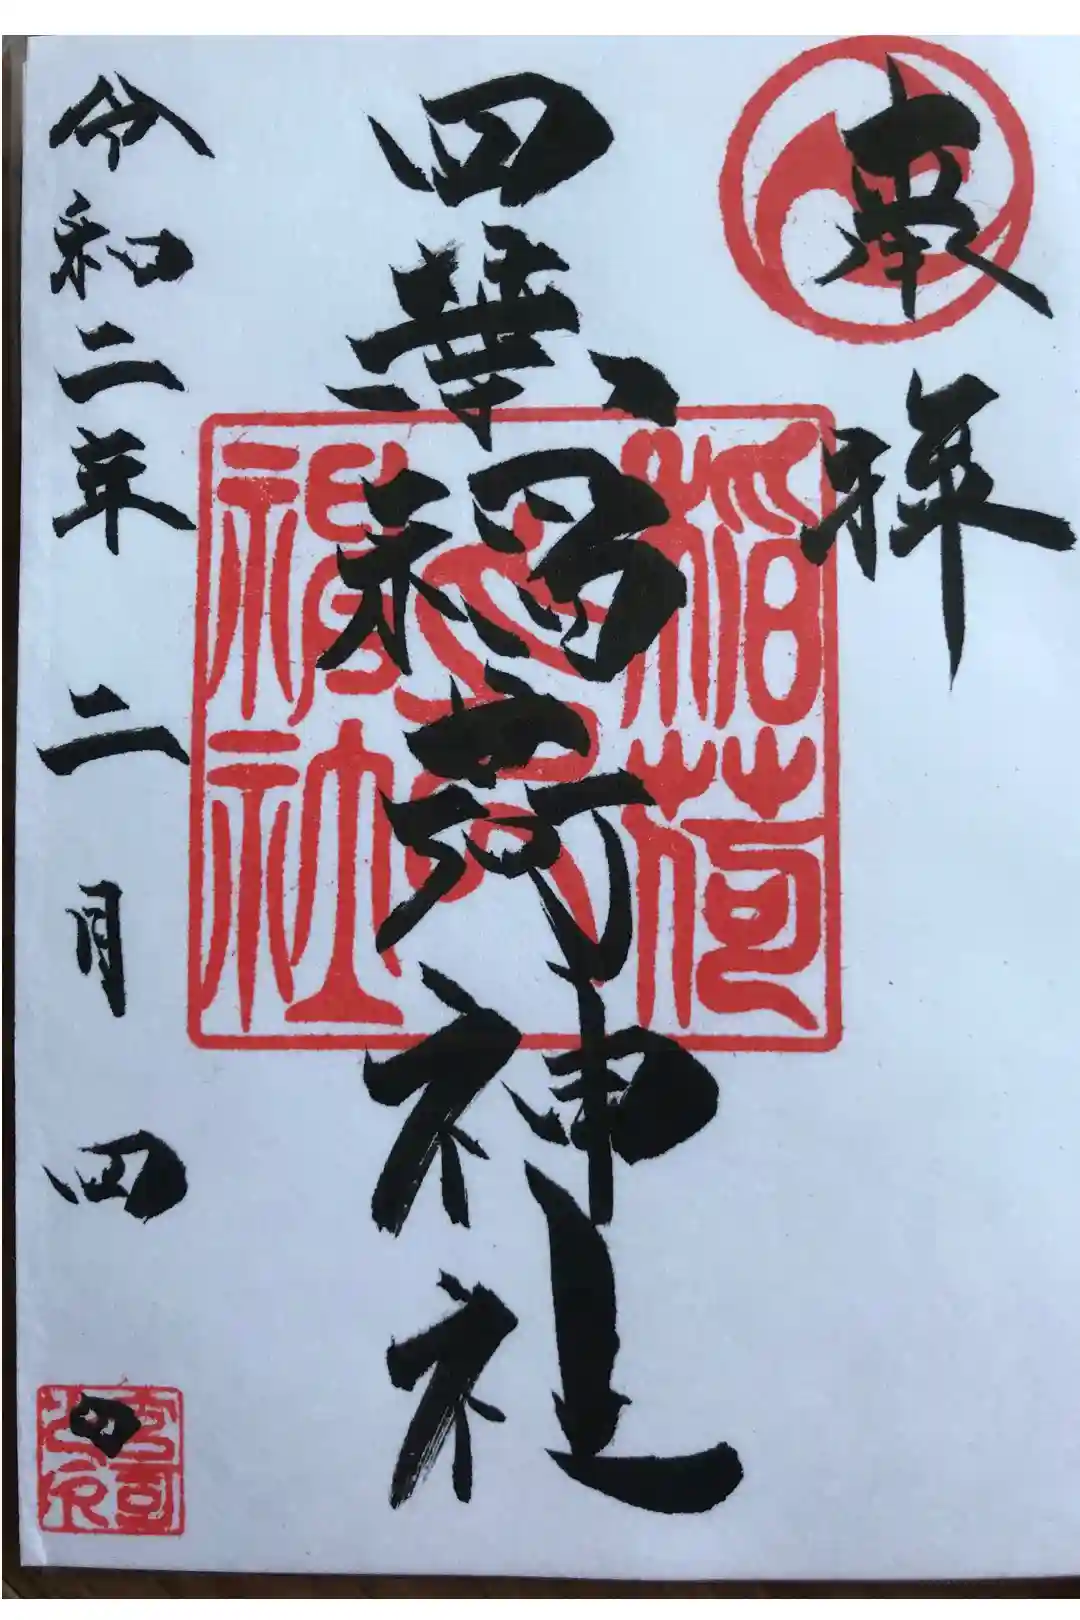 奉拝
四葉稲荷神社
令和二年 二月 四日
稲荷
神社
宮司
之印